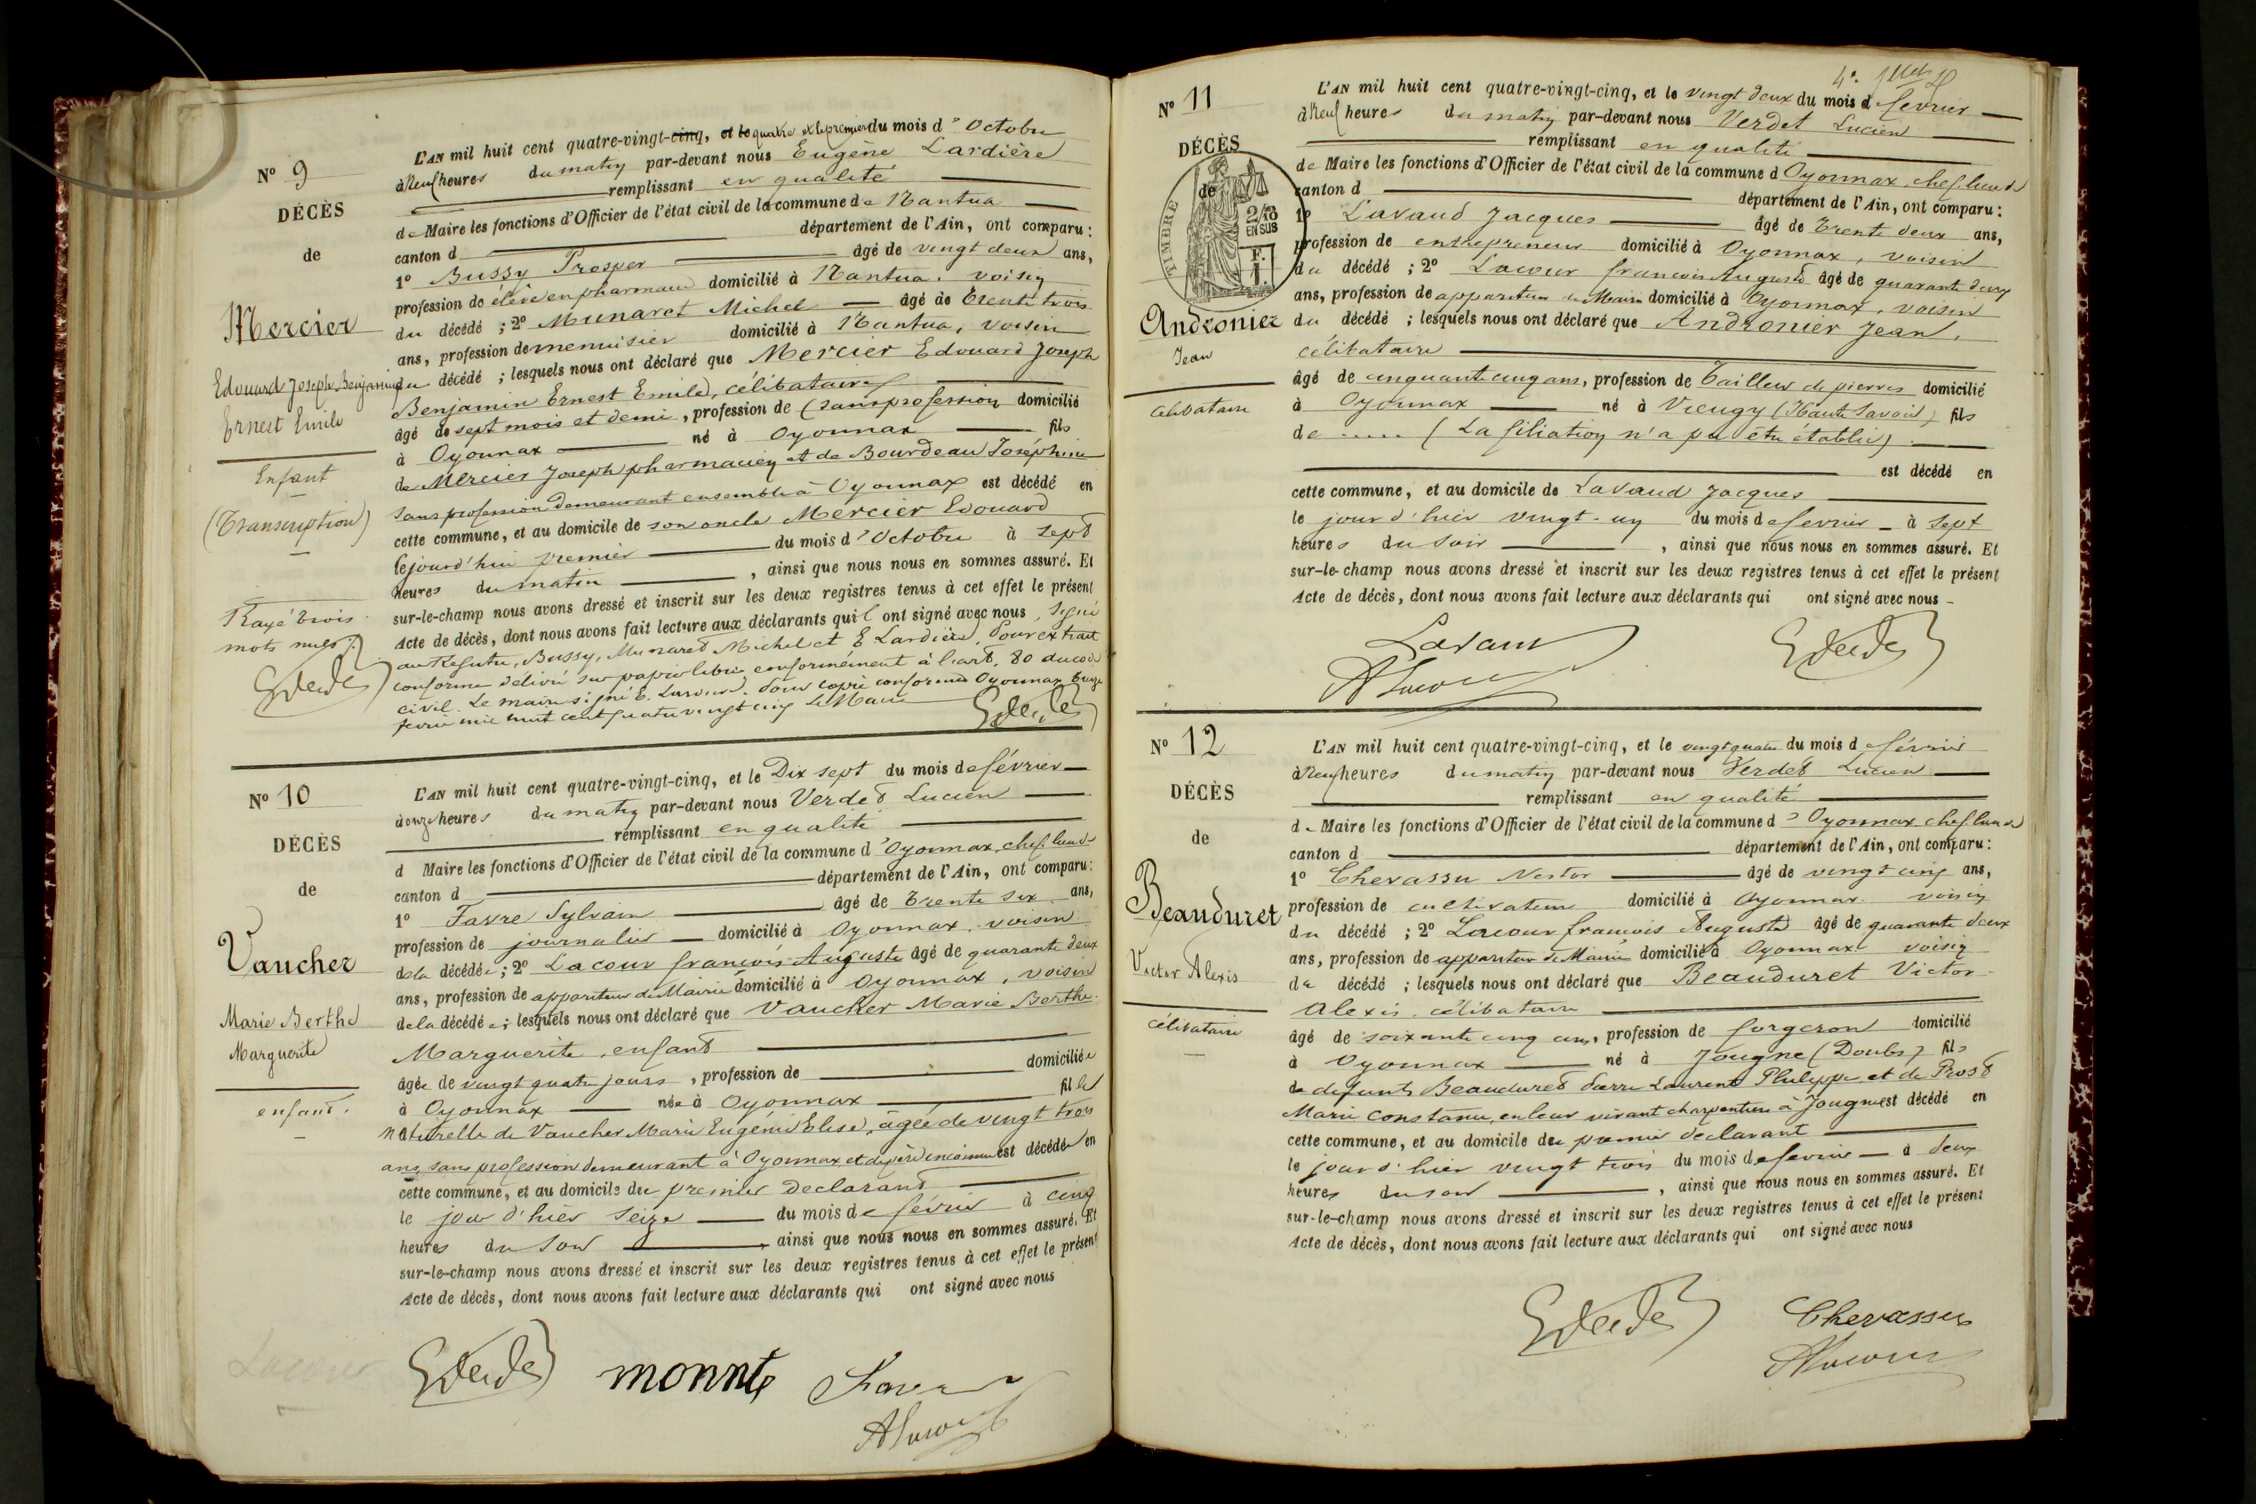 Nº 9
DÉCÈS
de
Mercier
Edouard Joseph Benjamin
Ernest Emile
Enfant
(Transcription)
Rayé trois
mots nuls
L'AN mil huit cent quatre-vingt-cinq, et le quatre et le premier du mois d'Octobre
à Neuf heures du matin par-devant nous Eugène Lardière
remplissant en qualité
de Maire les fonctions d'Officier de l'état civil de la commune de Nantua
canton d département de l'Ain, ont comparu :
1º Bussy Prosper âgé de vingt deux ans,
profession de élève en pharmacie domicilié à Nantua, voisin
du décédé ; 2º Munaret Michel âgé de trente trois
ans, profession de menuisier domicilié à Nantua, voisin
du décédé ; lesquels nous ont déclaré que Mercier Edouard Joseph
Benjamin Ernest Emile, célibataire
âgé de sept mois et demi, profession de (sans profession domicilié
à Oyonnax né à Oyonnax fils
de Mercier Joseph pharmacien et de Bourdeau Joséphine
sans profession demeurant ensemble à Oyonnax est décédé en
cette commune, et au domicile de son oncle Mercier Edouard
le jourd'hui premier du mois d'Octobre à sept
heures du matin, ainsi que nous nous en sommes assuré. Et
sur-le-champ nous avons dressé et inscrit sur les deux registres tenus à cet effet le présent
Acte de décès, dont nous avons fait lecture aux déclarants qui l ont signé avec nous, signé
au Registre, Bussy, Munaret Michel et E Lardière. Pour extrait
conforme délivré sur papier libre conformément à l'art. 80 du code
civil. Le maire signé E. Lardière. Pour copie conforme Oyonnax treize
février mil huit cent quatre vingt cinq Le Maire
Nº 10
DÉCÈS
de
Vaucher
Marie Berthe
Marguerite
enfant.
L'AN mil huit cent quatre-vingt-cinq, et le Dix sept du mois de février
à onze heures du matin par-devant nous Verdet Lucien
remplissant en qualité
d Maire les fonctions d'Officier de l'état civil de la commune d'Oyonnax, chef lieu de
canton d département de l'Ain, ont comparu :
1º Favre Sylvain âgé de trente six ans,
profession de journalier domicilié à Oyonnax, voisin
de la décédée ; 2º Lacour françois Auguste âgé de quarante deux
ans, profession de appariteur de Mairie domicilié à Oyonnax, voisin
de la décédée ; lesquels nous ont déclaré que Vaucher Marie Berthe
Marguerite, enfant
âgée de vingt quatre jours, profession de domiciliée
à Oyonnax née à Oyonnax fille
naturelle de Vaucher Marie Eugénie Elise, âgée de vingt trois
ans, sans profession demeurant à Oyonnax et de père inconnu est décédée en
cette commune, et au domicile du premier déclarant
le jour d'hier seize du mois de février à cinq
heures du soir, ainsi que nous nous en sommes assuré. Et
sur-le-champ nous avons dressé et inscrit sur les deux registres tenus à cet effet le présent
Acte de décès, dont nous avons fait lecture aux déclarants qui ont signé avec nous
Lacour
monnte
Nº 11
DÉCÈS
de
TIMBRE
2/10
EN SUS
F.
1.
Andronier
Jean
célibataire
L'AN mil huit cent quatre-vingt-cinq, et le vingt deux du mois de février
à Neuf heures du matin par-devant nous Verdet Lucien
remplissant en qualité
de Maire les fonctions d'Officier de l'état civil de la commune d Oyonnax, chef lieu d
canton d département de l'Ain, ont comparu :
1º Lavaud Jacques âgé de trente deux ans,
profession de entrepreneur domicilié à Oyonnax, voisin
du décédé ; 2º Lacour françois Auguste âgé de quarante deux
ans, profession de appariteur de Mairie domicilié à Oyonnax, voisin
du décédé ; lesquels nous ont déclaré que Andronier Jean,
célibataire
âgé de cinquante cinq ans, profession de Tailleur de pierres domicilié
à Oyonnax né à Vieugy (Haute Savoie) fils
de ..... (La filiation n'a pu être établie).
est décédé en
cette commune, et au domicile de Lavaud Jacques
le jour d'hier vingt-un du mois de février à sept
heures du soir, ainsi que nous nous en sommes assuré. Et
sur-le-champ nous avons dressé et inscrit sur les deux registres tenus à cet effet le présent
Acte de décès, dont nous avons fait lecture aux déclarants qui ont signé avec nous
Lavaud
Nº 12
DÉCÈS
de
Beauduret
Victor Alexis
célibataire
L'AN mil huit cent quatre-vingt-cinq, et le vingt quatre du mois de février
à Neuf heures du matin par-devant nous Verdet Lucien
remplissant en qualité
de Maire les fonctions d'Officier de l'état civil de la commune d'Oyonnax, chef lieu de
canton d département de l'Ain, ont comparu :
1º Chevassu Nestor âgé de vingt cinq ans,
profession de cultivateur domicilié à Oyonnax voisin
du décédé ; 2º Lacour françois Auguste âgé de quarante deux
ans, profession de appariteur de Mairie domicilié à Oyonnax voisin
du décédé ; lesquels nous ont déclaré que Beauduret Victor
Alexis, célibataire
âgé de soixante cinq ans, profession de forgeron domicilié
à Oyonnax né à Jougne (Doubs) fils
de défunts Beauduret Pierre Laurent Philippe et de Prost
Marie Constance, en leur vivant charpentiers à Jougne est décédé en
cette commune, et au domicile du premier déclarant
le jour d'hier vingt trois du mois de février à deux
heures du soir, ainsi que nous nous en sommes assuré. Et
sur-le-champ nous avons dressé et inscrit sur les deux registres tenus à cet effet le présent
Acte de décès, dont nous avons fait lecture aux déclarants qui ont signé avec nous
Chevassu